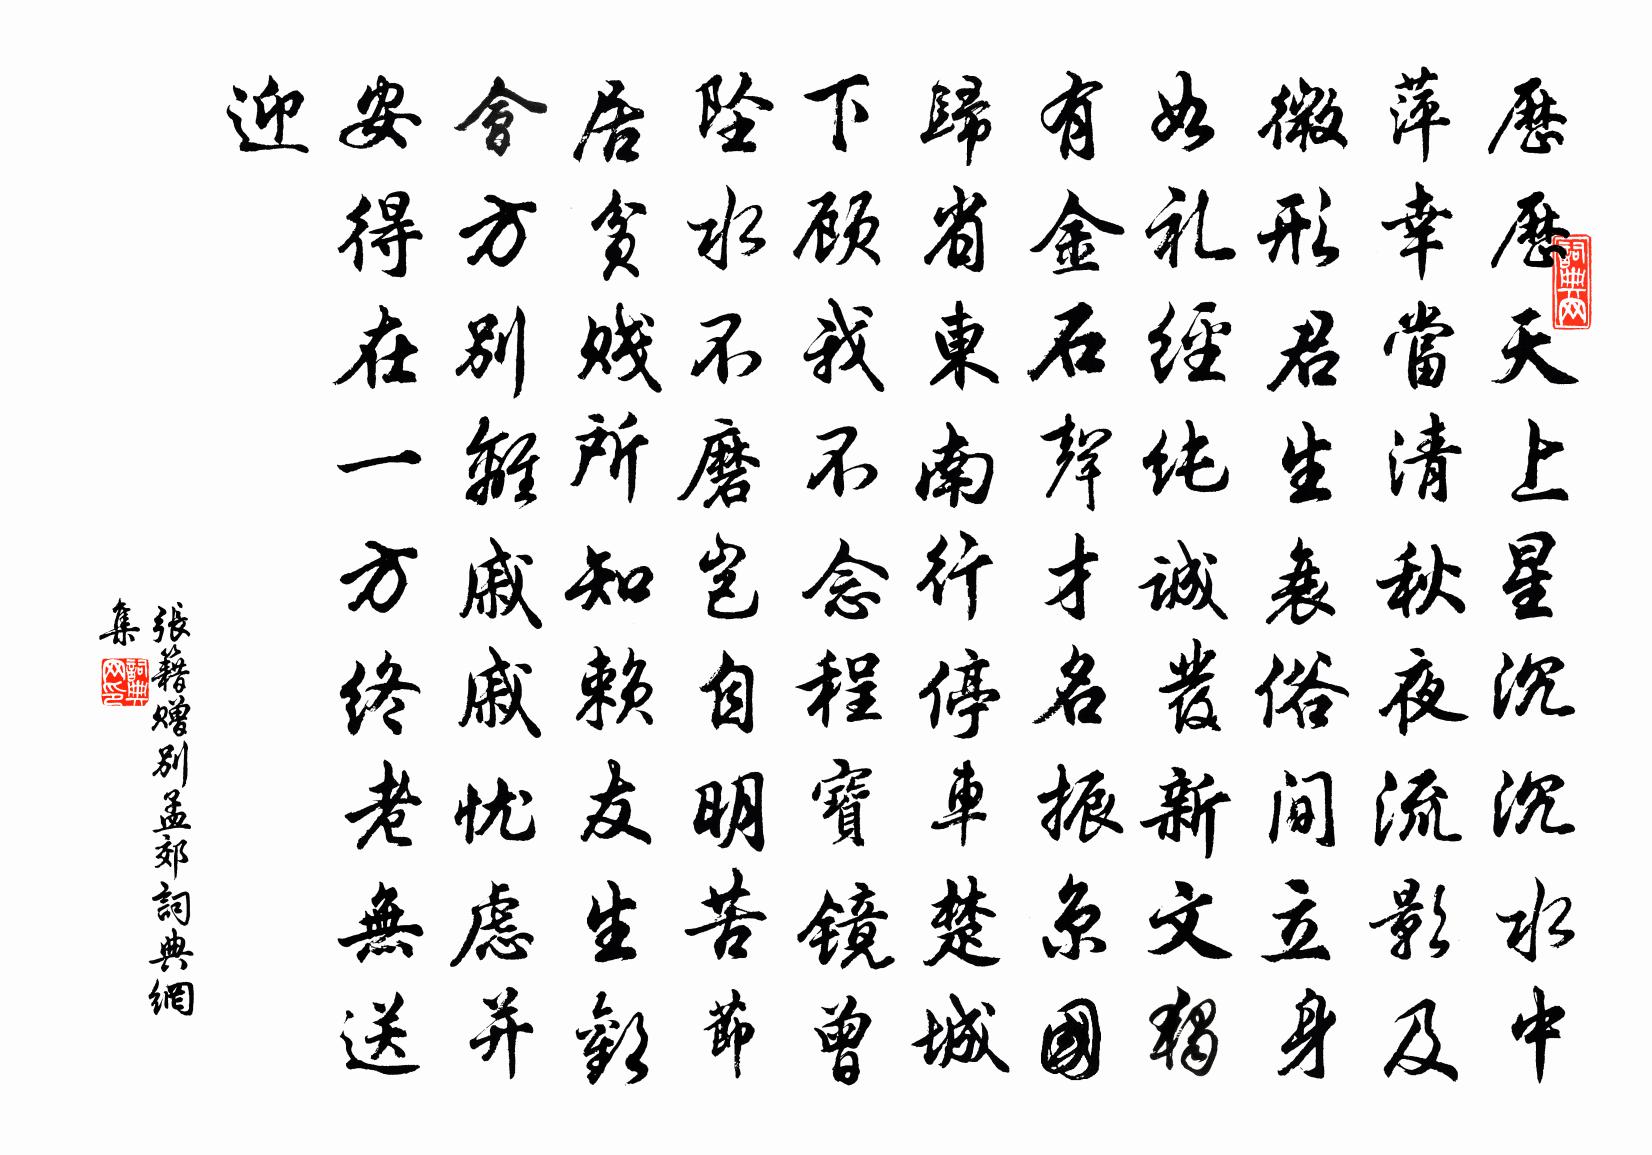 歷歷天上星沉沉水中
萍幸當清秋夜流影及
微形君生衰俗间立身
如礼經纯誠發新文獨
有金石聲才名振京國
歸省東南行停車楚城
下顾我不念程寶鏡曾
坠水不磨岂自明苦節
居貧賤所知賴友生歡
會方别離戚戚忧慮并
安得在一方终老無送
迎
張籍贈别孟郊詞典網
集
詞典网
詞典网印